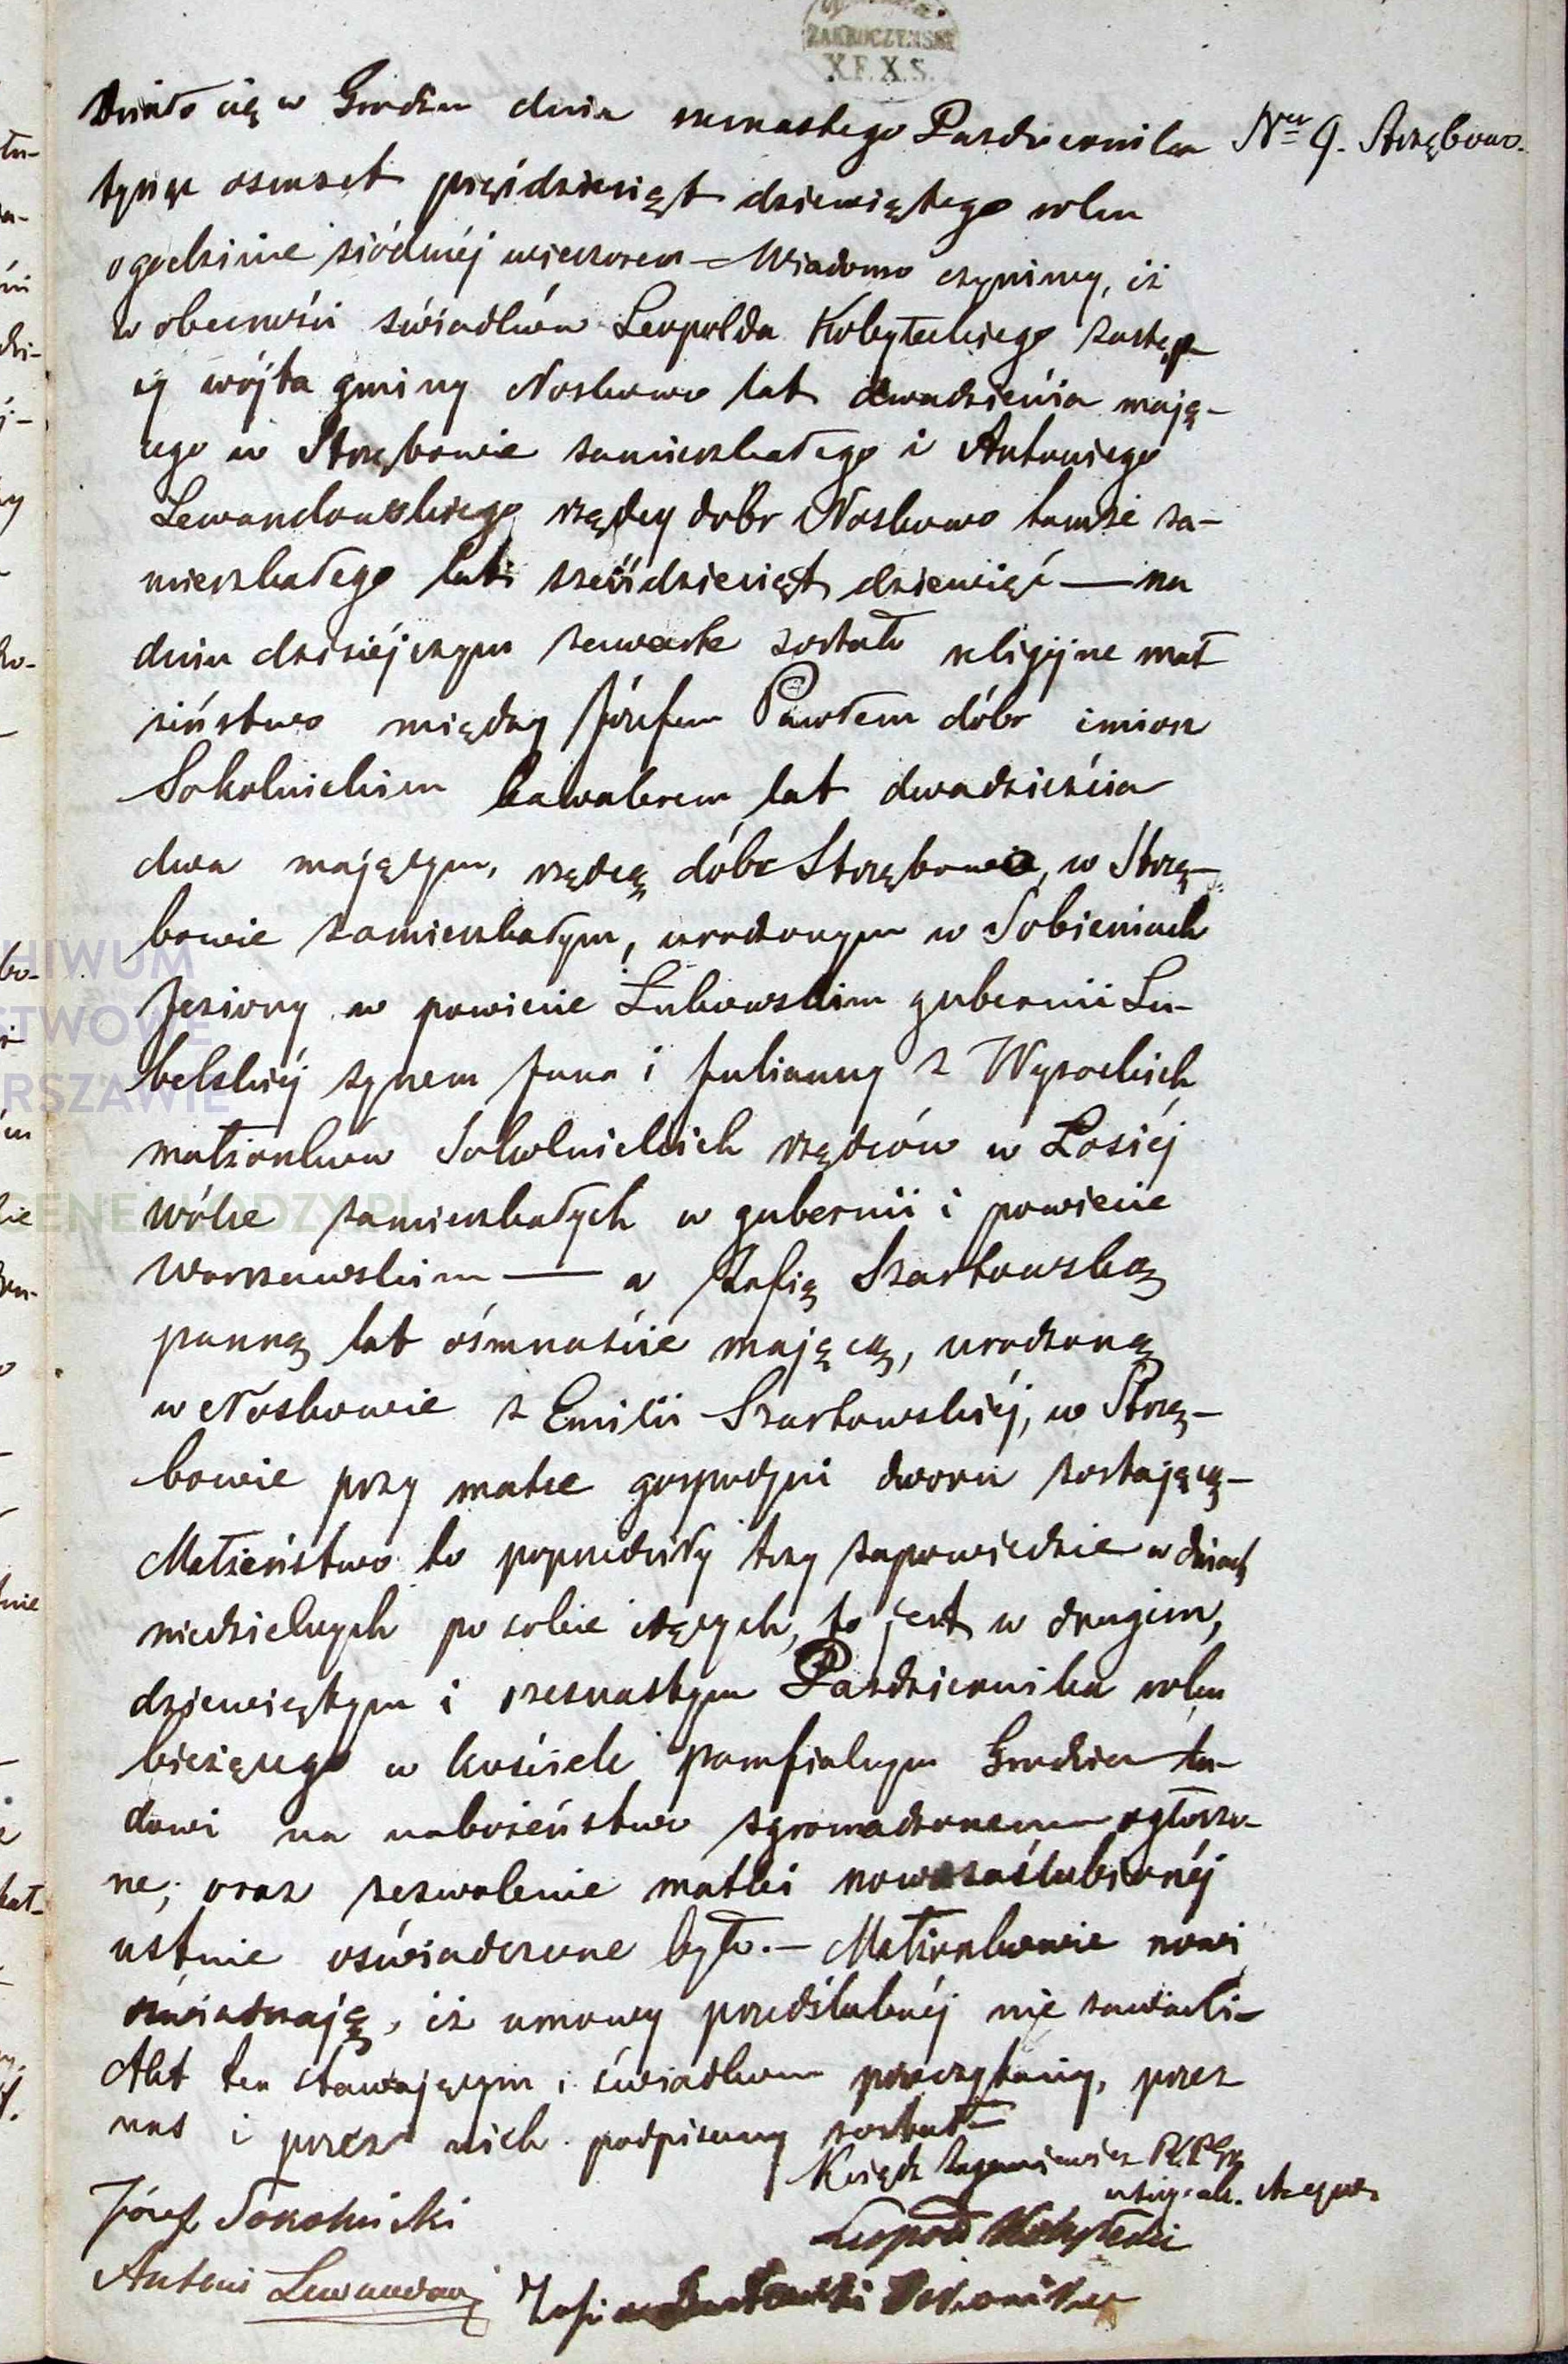 ZAKROCZYMSKI
X.F.X.S.
Ner 9. Strzębowo.
Działo się w Grodźcu dnia Pazdziernika
tysiąc osmset pięśdziesiąt dziewiątego roku
o godzinie siódméj wieczorem – Wiadomo czynimy, iż
w obecności świadków Leopolda Kobyłeckiego zastęp-
cy wójta gminy Noskowo lat dwadzieścia mają-
cego w Strzębowie zamieszkałego i Antoniego
Lewandowskiego rządcy dobr Noskowo tamże za-
mieszkałego lat sześśdziesiąt dziewięć — na
dniu dzisiéjszym zawarte zostało religijne mał
żeństwo między Józefem Pawłem dóbr imion
Sokolnickim kawalerem lat dwadzieścia
dwa mającym, rządcą dóbr Strzębowo, w Strzę-
bowie zamieszkałym, urodzonym w Sobieniach
Jeziory w powiecie Łukowskim gubernii Lu-
belskiéj synem Jana i Julianny z Wysockich
małżonków Sokolnickich rządców w Łosiéj
wólce zamieszkałych w gubernii i powiecie
Warszawskim — a Zofią Szartowską
panną lat ośmnaście mającą, urodzoną
w Noskowie z Emilii Szartowskiéj, w Strzę-
bowie przy matce gospodyni dworu zostającą –
Małżeństwo to poprzedziły trzy zapowiedzie w dniach
niedzielnych po sobie idących, to jest w drugim,
dziewiątym i szesnastym Pazdziernika roku
bieżącego w kościele parafialnym Grodziec lu-
dowi na nabożeństwo zgromadzonemu ogłoszo-
ne; oraz zezwolenie matki nowozaślubionéj
ustnie oświadczone było. – Małżonkowie nowi
oświadczają, iż umowy przedślubnéj nie zawarli –
Akt ten stawającym i świadkom przeczytany, przez
nas i przez nich podpisany został –
Ksiądz
Józef Sokolnicki
Leopold Kobyłecki
Antoni Lewandowski
Zofia